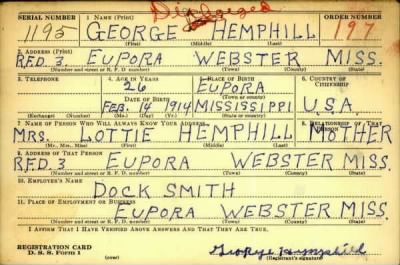 Discharged
SERIAL NUMBER 1. NAME (Print) ORDER NUMBER
1195 GEORGE HEMPHILL 197
(First) (Middle) (Last)
2. ADDRESS (Print)
R.F.D. 3 EUPORA WEBSTER MISS.
(Number and street or R. F. D. number) (Town) (County) (State)
3. TELEPHONE 4. AGE IN YEARS 5. PLACE OF BIRTH 6. COUNTRY OF CITIZENSHIP
26 EUPORA
(Town or county)
DATE OF BIRTH
FEB. 14 1914 MISSISSIPPI U.S.A.
(Exchange) (Number) (Mo.) (Day) (Yr.) (State or country)
7. NAME OF PERSON WHO WILL ALWAYS KNOW YOUR ADDRESS 8. RELATIONSHIP OF THAT PERSON
MRS. LOTTIE HEMPHILL MOTHER
(Mr., Mrs., Miss) (First) (Middle) (Last)
9. ADDRESS OF THAT PERSON
R.F.D. 3 EUPORA WEBSTER MISS.
(Number and street or R. F. D. number) (Town) (County) (State)
10. EMPLOYER'S NAME
DOCK SMITH
11. PLACE OF EMPLOYMENT OR BUSINESS
EUPORA WEBSTER MISS.
(Number and street or R. F. D. number) (Town) (County) (State)
I AFFIRM THAT I HAVE VERIFIED ABOVE ANSWERS AND THAT THEY ARE TRUE.
REGISTRATION CARD
D. S. S. Form 1 (over) George Hemphill
(Registrant's signature)